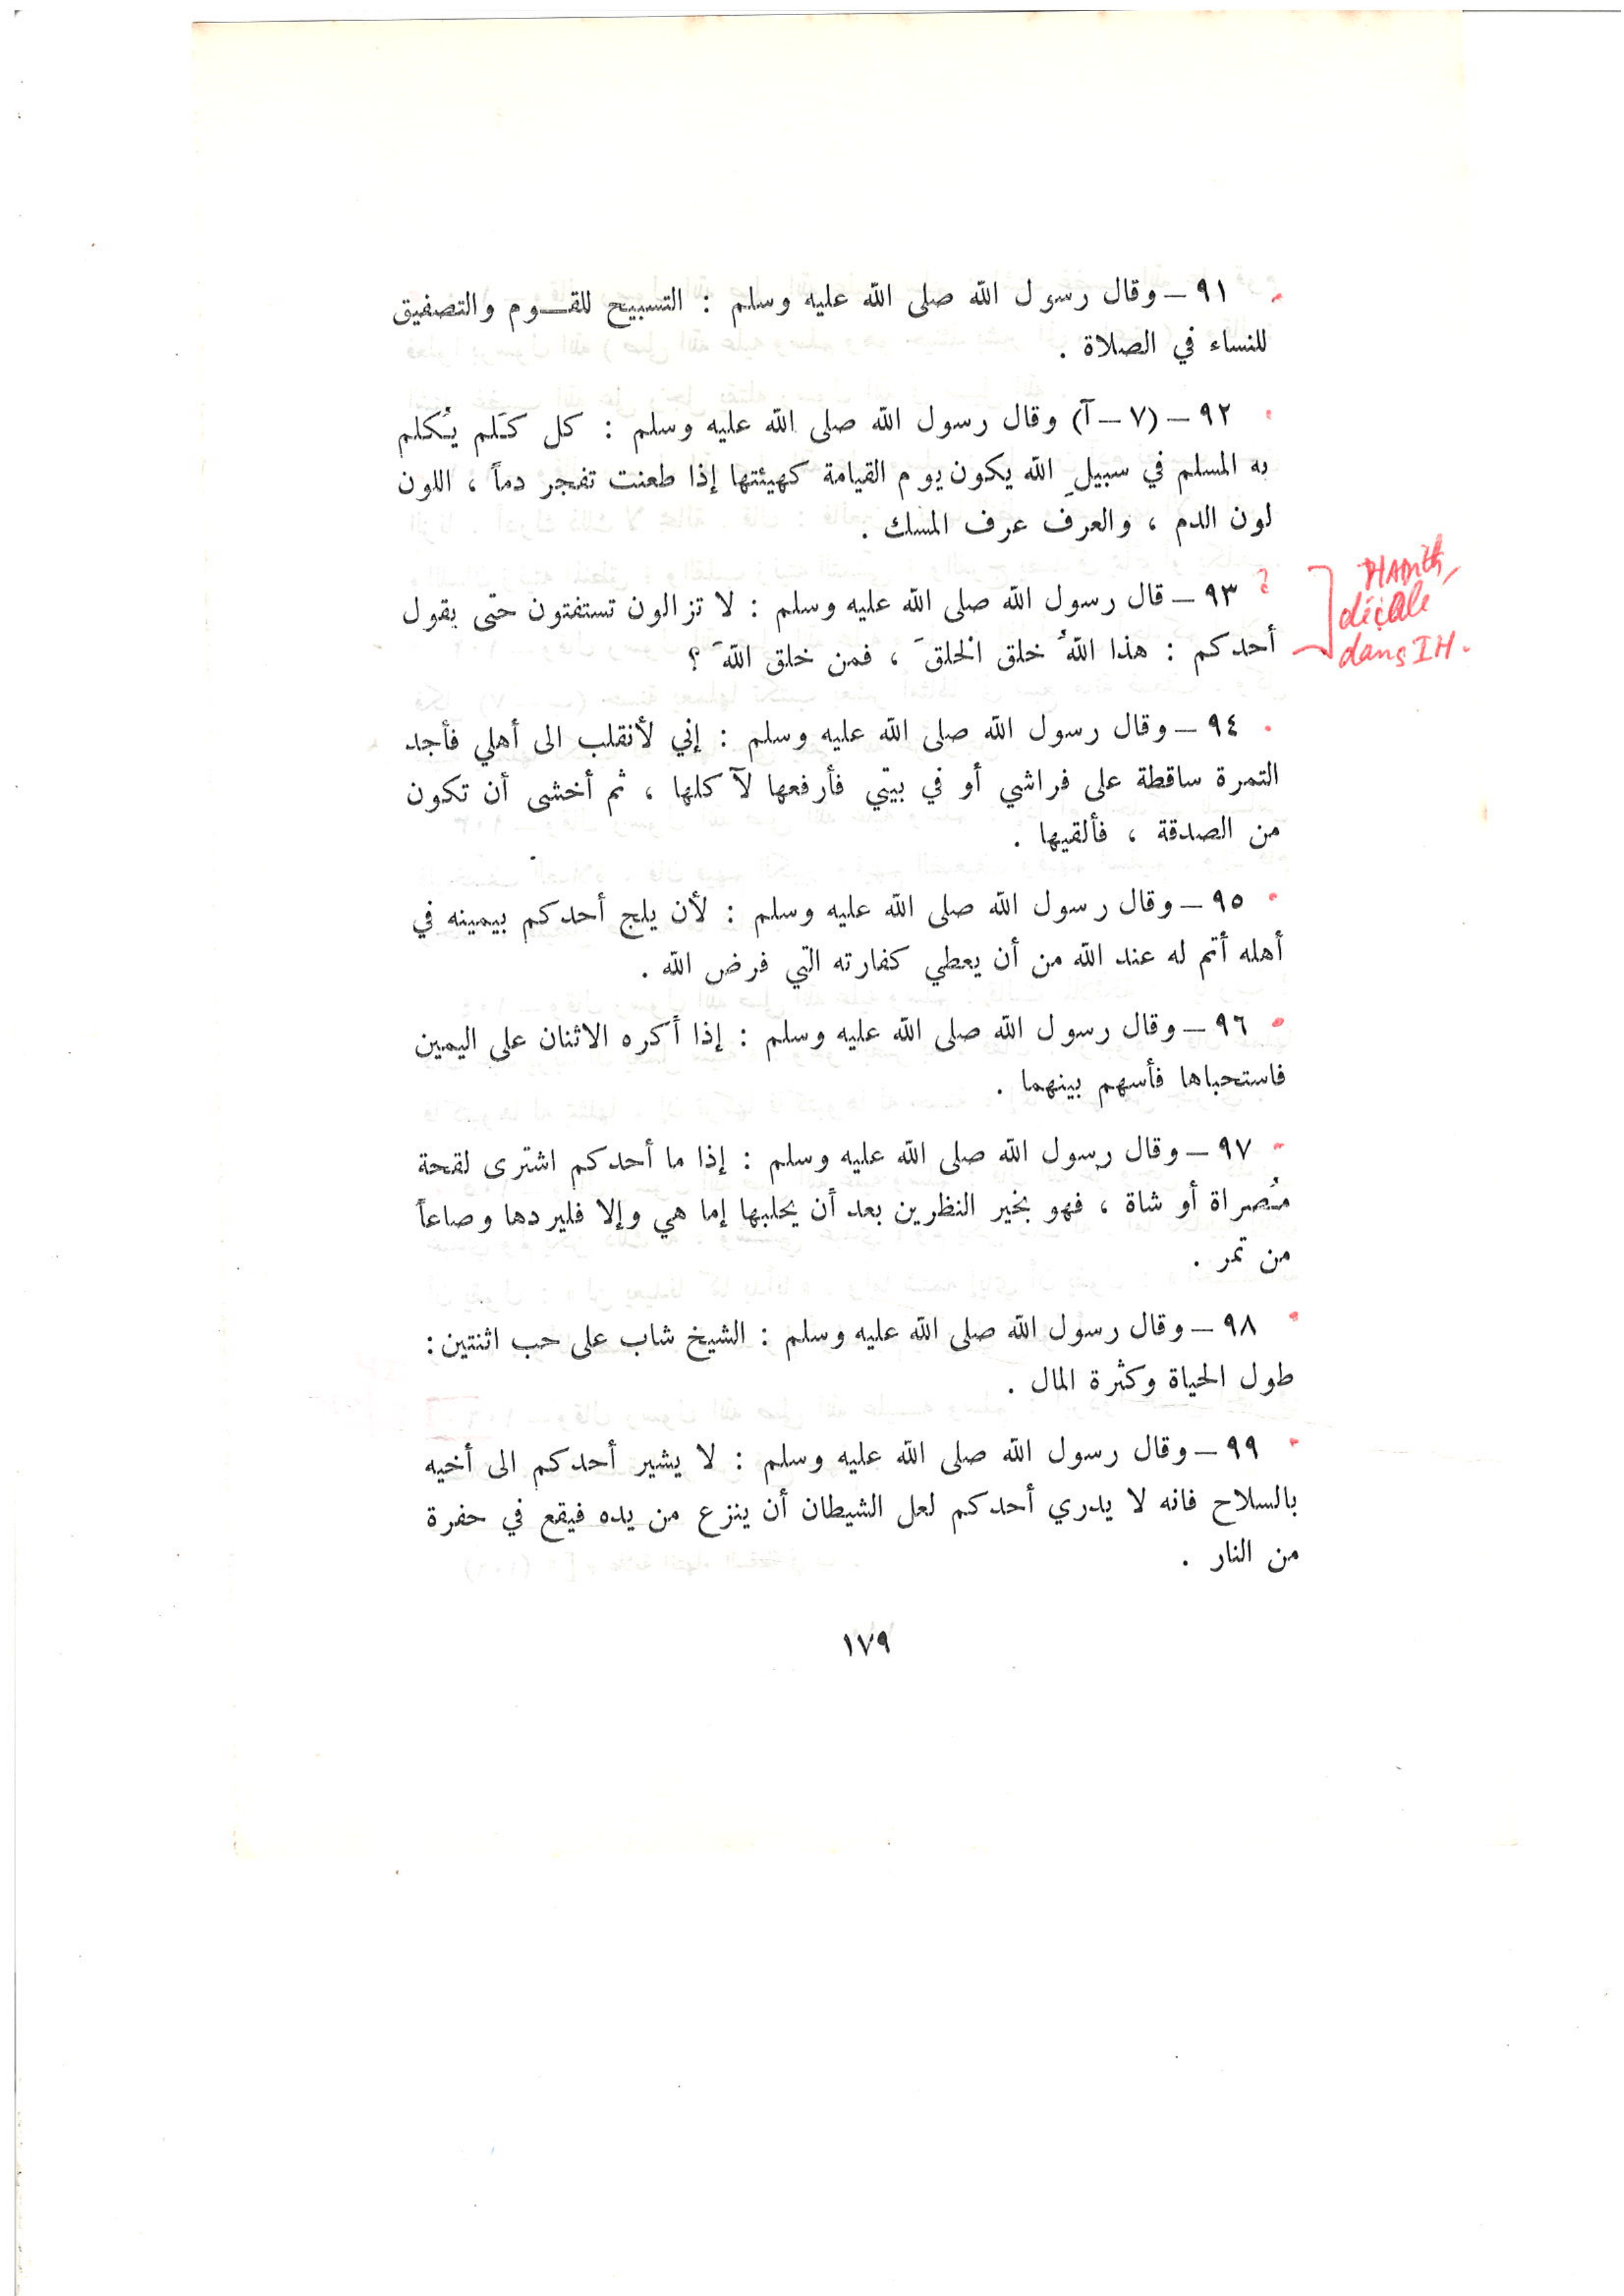 ٩١ – وقال رسول الله صلى الله عليه وسلم : التسبيح للقـــوم والتصفيق
للنساء في الصلاة .
٩٢ – (٧ – آ) وقال رسول الله صلى الله عليه وسلم : كل كَلم يُكلم
به المسلم في سبيلِ الله يكون يوم القيامة كهيئتها إذا طعنت تفجر دماً ، اللون
لون الدم ، والعرف عرف المسك .
؟ ٩٣ – قال رسول الله صلى الله عليه وسلم : لا تزالون تستفتون حتى يقول
أحدكم : هذا اللهُ خلق الخلقَ ، فمن خلق اللهَ ؟
HADITH
décalé
dans IH.
٩٤ – وقال رسول الله صلى الله عليه وسلم : إني لأنقلب الى أهلي فأجد
التمرة ساقطة على فراشي أو في بيتي فأرفعها لآكلها ، ثم أخشى أن تكون
من الصدقة ، فألقيها .
٩٥ – وقال رسول الله صلى الله عليه وسلم : لأن يلج أحدكم بيمينه في
أهله أتم له عند الله من أن يعطي كفارته التي فرض الله .
٩٦ – وقال رسول الله صلى الله عليه وسلم : إذا أكره الاثنان على اليمين
فاستحباها فأسهم بينهما .
٩٧ – وقال رسول الله صلى الله عليه وسلم : إذا ما أحدكم اشترى لقحة
مُصراة أو شاة ، فهو بخير النظرين بعد أن يحلبها إما هي وإلا فليردها وصاعاً
من تمر .
٩٨ – وقال رسول الله صلى الله عليه وسلم : الشيخ شاب على حب اثنتين :
طول الحياة وكثرة المال .
٩٩ – وقال رسول الله صلى الله عليه وسلم : لا يشير أحدكم الى أخيه
بالسلاح فانه لا يدري أحدكم لعل الشيطان أن ينزع من يده فيقع في حفرة
من النار .
١٧٩